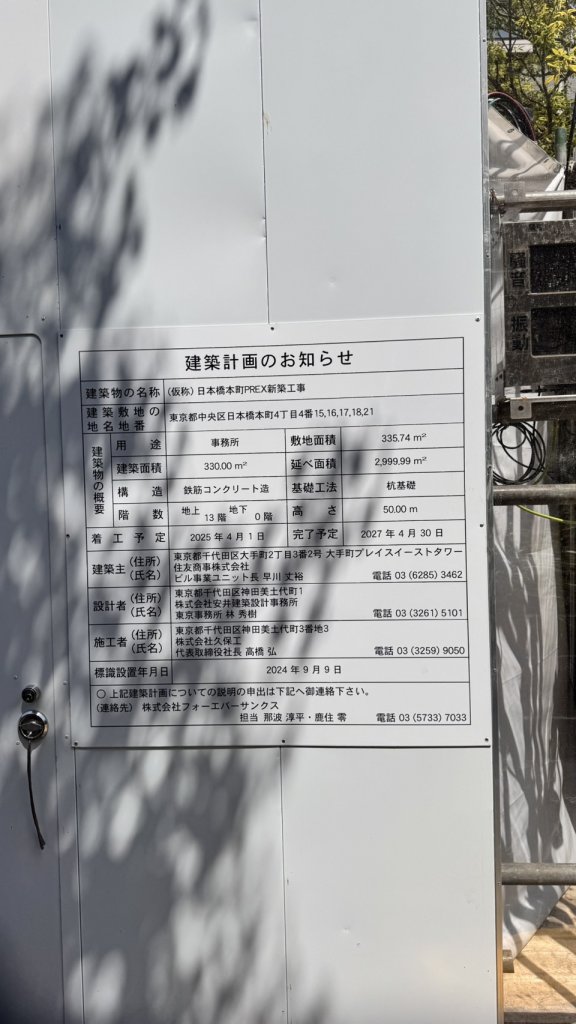 騒音
振動
建築計画のお知らせ
建築物の名称 (仮称) 日本橋本町PREX新築工事
建築敷地の地名地番 東京都中央区日本橋本町4丁目4番15,16,17,18,21
建築物の概要
用途 事務所 敷地面積 335.74 m²
建築面積 330.00 m² 延べ面積 2,999.99 m²
構造 鉄筋コンクリート造 基礎工法 杭基礎
階数 地上 13 階 地下 0 階 高さ 50.00 m
着工予定 2025 年 4 月 1 日 完了予定 2027 年 4 月 30 日
建築主 (住所) 東京都千代田区大手町2丁目3番2号 大手町プレイスイーストタワー
(氏名) 住友商事株式会社
ビル事業ユニット長 早川 丈裕 電話 03 (6285) 3462
設計者 (住所) 東京都千代田区神田美土代町1
(氏名) 株式会社安井建築設計事務所
東京事務所 林 秀樹 電話 03 (3261) 5101
施工者 (住所) 東京都千代田区神田美土代町3番地3
(氏名) 株式会社久保工
代表取締役社長 高橋 弘 電話 03 (3259) 9050
標識設置年月日 2024 年 9 月 9 日
○ 上記建築計画についての説明の申出は下記へ御連絡下さい。
(連絡先) 株式会社フォーエバーサンクス
担当 那波 淳平・鹿住 零 電話 03 (5733) 7033